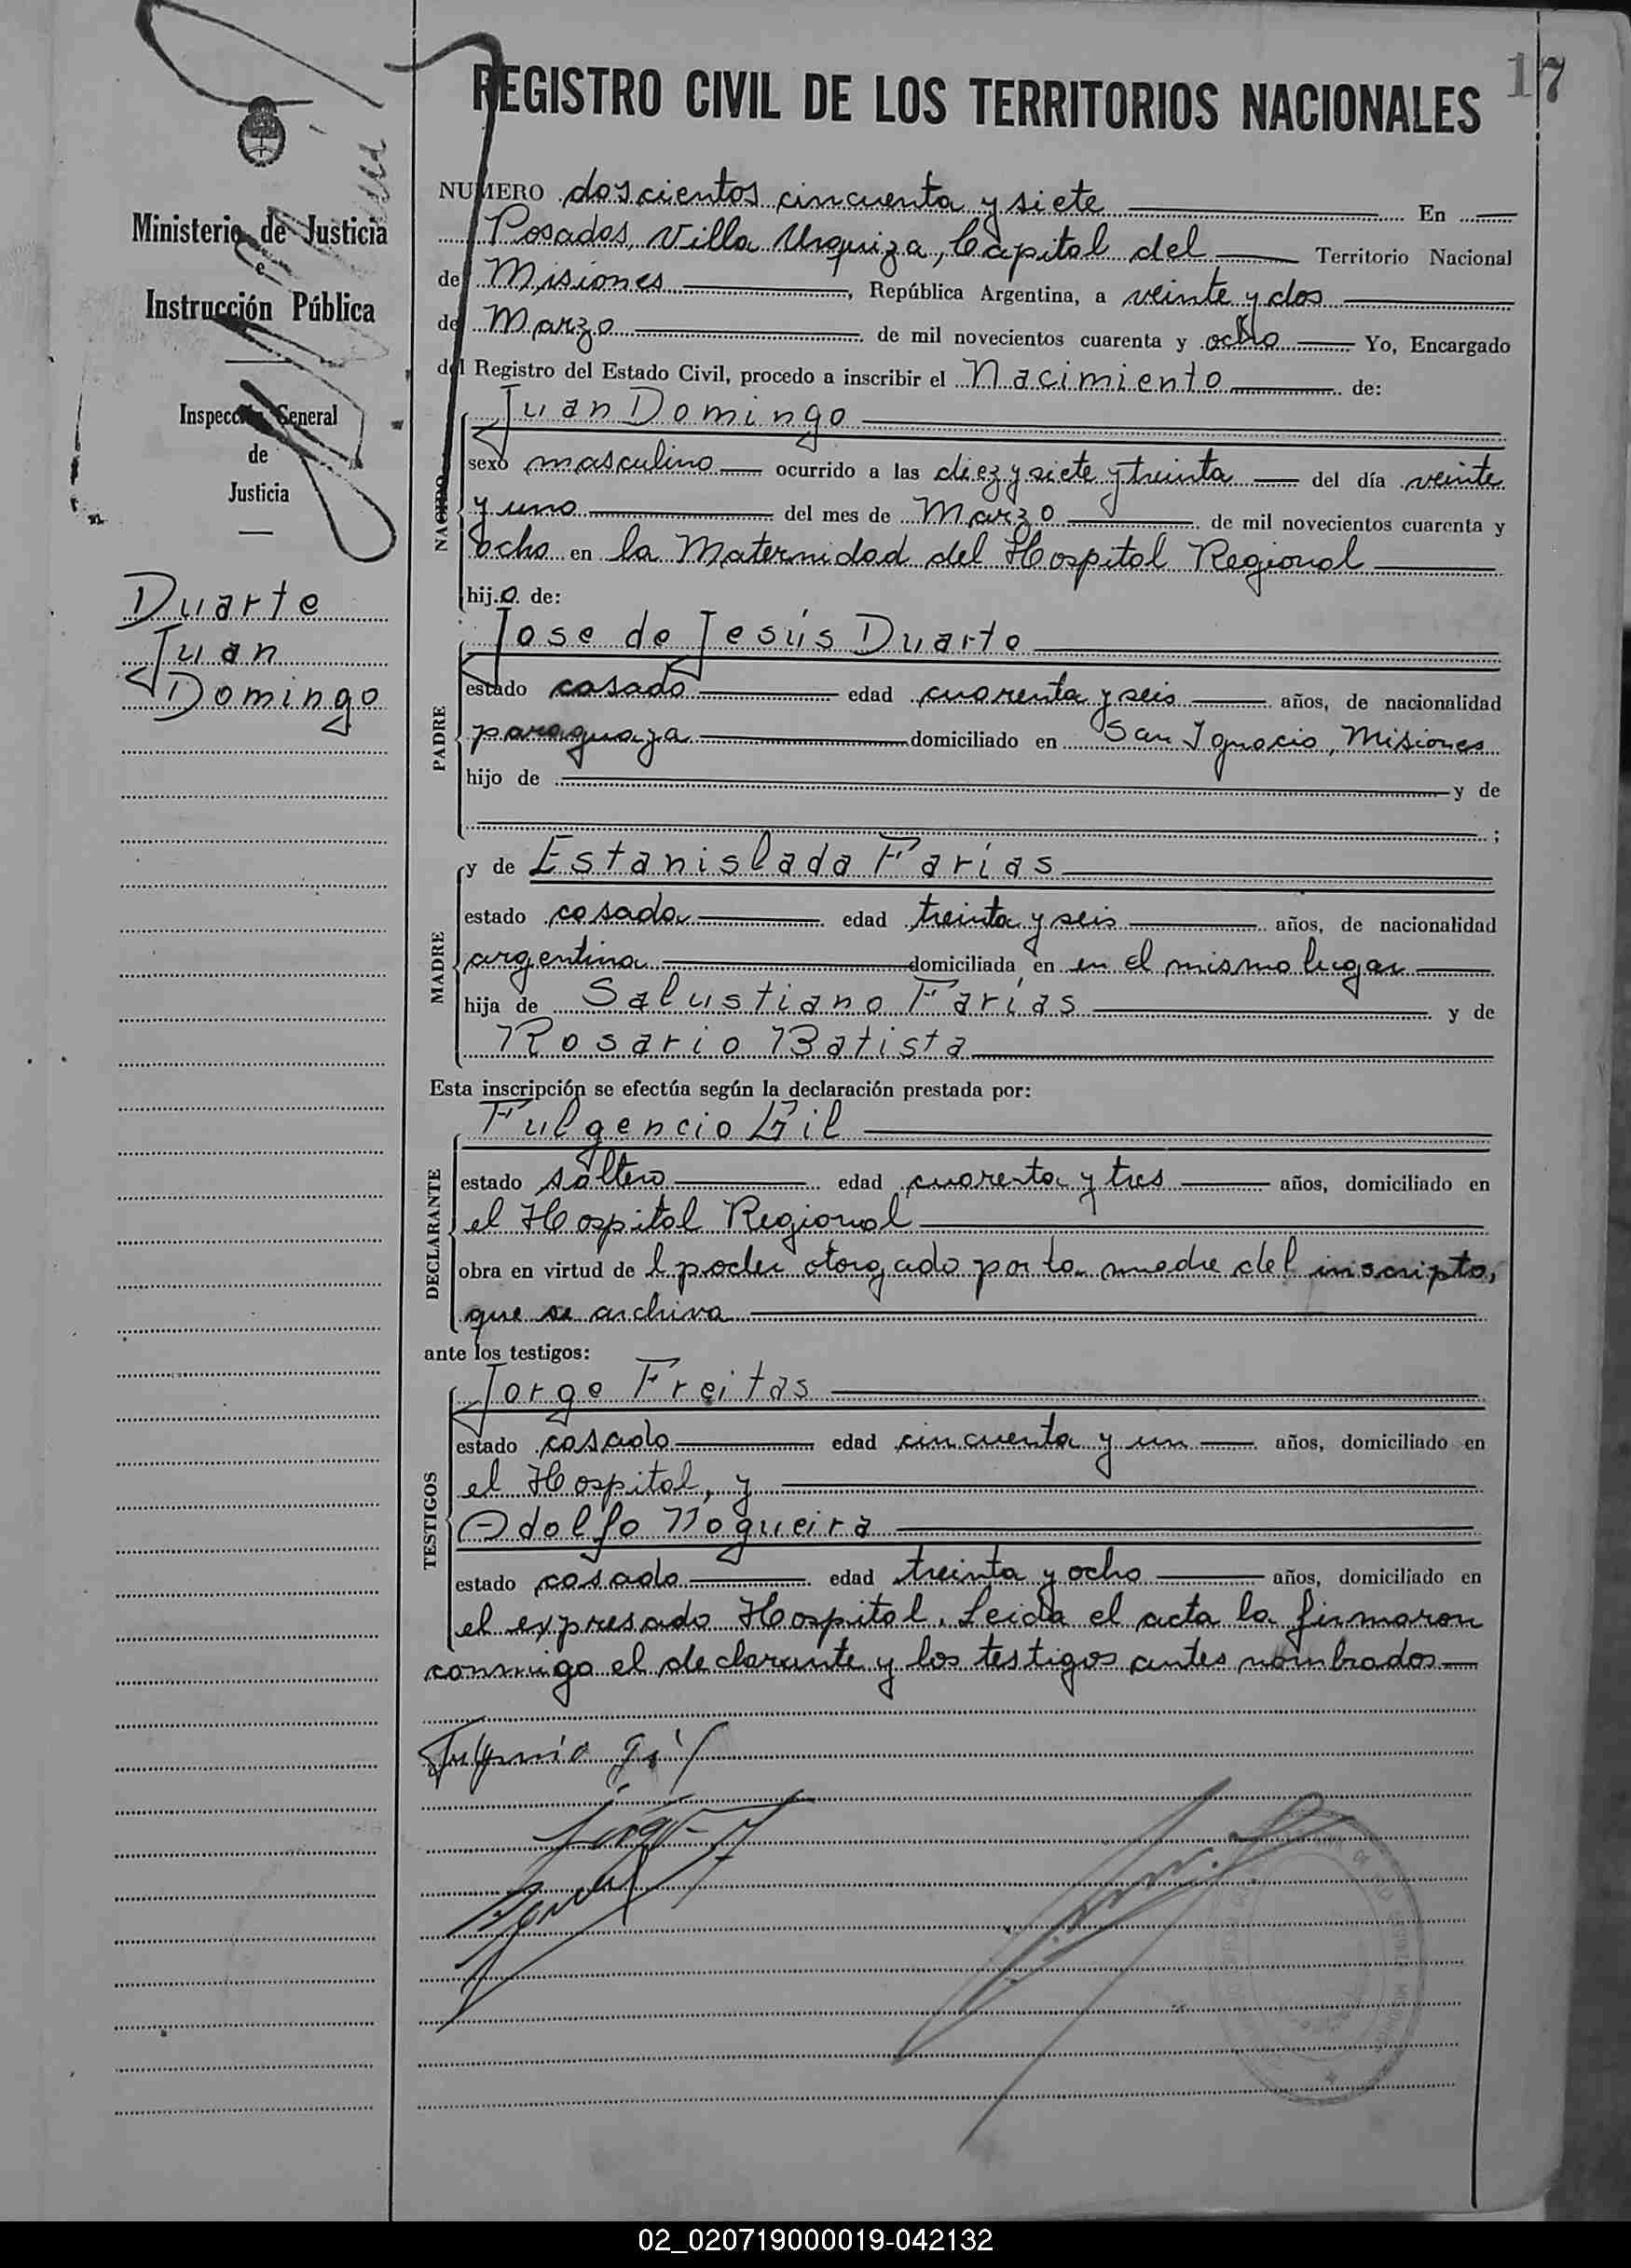 17
REGISTRO CIVIL DE LOS TERRITORIOS NACIONALES
Ministerio de Justicia
e
Instrucción Pública
Inspección General
de
Justicia
Duarte
Juan
Domingo
NUMERO doscientos cincuenta y siete En
Posadas, Villa Urquiza, Capital del Territorio Nacional
de Misiones, República Argentina, a veinte y dos
de Marzo de mil novecientos cuarenta y ocho Yo, Encargado
del Registro del Estado Civil, procedo a inscribir el Nacimiento de:
NACIDO
Juan Domingo
sexo masculino ocurrido a las diez y siete y treinta del día veinte
y uno del mes de Marzo de mil novecientos cuarenta y
ocho en la Maternidad del Hospital Regional
hijo de:
PADRE
Jose de Jesús Duarte
estado casado edad cuarenta y seis años, de nacionalidad
paraguaya domiciliado en San Ignacio, Misiones
hijo de y de
;
MADRE
y de Estanislada Farías
estado casada edad treinta y seis años, de nacionalidad
argentina domiciliada en en el mismo lugar
hija de Salustiano Farías y de
Rosario Batista
Esta inscripción se efectúa según la declaración prestada por:
DECLARANTE
Fulgencio Gil
estado soltero edad cuarenta y tres años, domiciliado en
el Hospital Regional
obra en virtud de l poder otorgado por la madre del inscripto,
que se archiva
ante los testigos:
TESTIGOS
Jorge Freitas
estado casado edad cincuenta y un años, domiciliado en
el Hospital, y
Adolfo Nogueira
estado casado edad treinta y ocho años, domiciliado en
el expresado Hospital. Leida el acta la firmaron
conmigo el declarante y los testigos antes nombrados
Fulgencio Gil
02_020719000019-042132